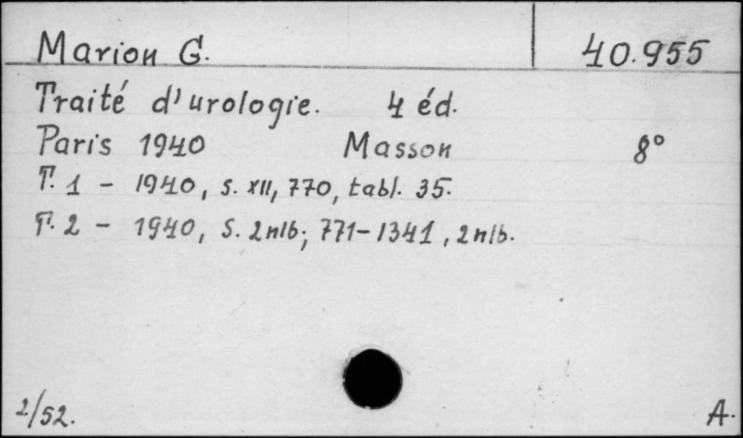 Marion G. 40.955
Traité d'urologie. 4 éd.
Paris 1940 Masson 8°
T. 1 - 1940, s. XII, 770, tabl. 35.
T. 2 - 1940, S. 2nlb; 771-1341, 2nlb.
2/52. A.